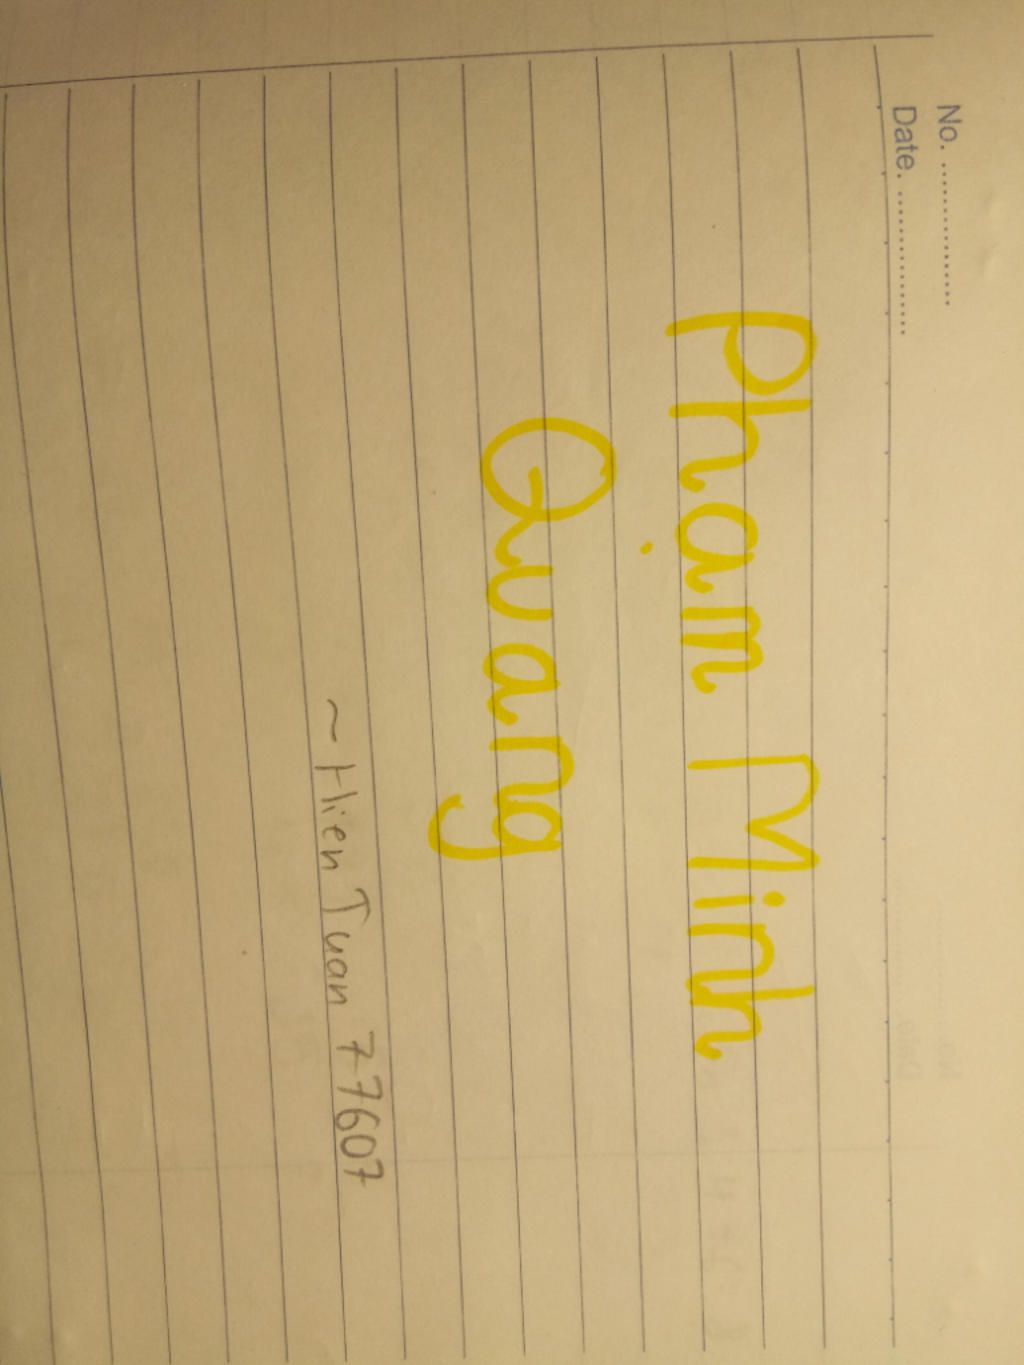 No. ................
Date. ................
Phạm Minh
Quang
~ Hien Tuan 77607